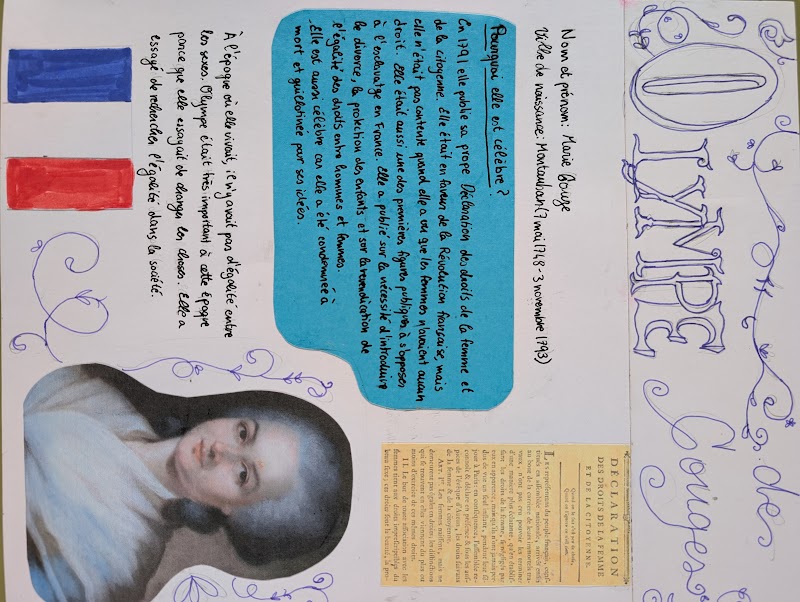 OLYMPE des Gouges
Nom et prénom: Marie Gouze
Ville de naissance: Montauban (7 mai 1748 - 3 novembre 1793)
Pourquoi elle est célèbre?
En 1791 elle publie sa propre Déclaration des droits de la femme et
de la citoyenne. Elle était en faveur de la Révolution française, mais
elle n'était pas contente quand elle a vu que les femmes n'avaient aucun
droit. Elle était aussi une des premières figures publiques à s'opposer
à l'esclavatge en France. Elle a publié sur la nécessité d'introduire
le divorce, la protection des enfants et sur la revendication de
l'égalité des droits entre hommes et femmes.
Elle est aussi célèbre car elle a été condamnée à
mort et guillotinée par ses idées.
À l'époque où elle vivait, il n'y avait pas d'égalité entre
les sexes. Olympe était très important à cette époque
parce que elle essayait de changer les choses. Elle a
essayé de rechercher l'égalité dans la société.
DÉCLARATION
DES DROITS DE LA FEMME
ET DE LA CITOYENNE.